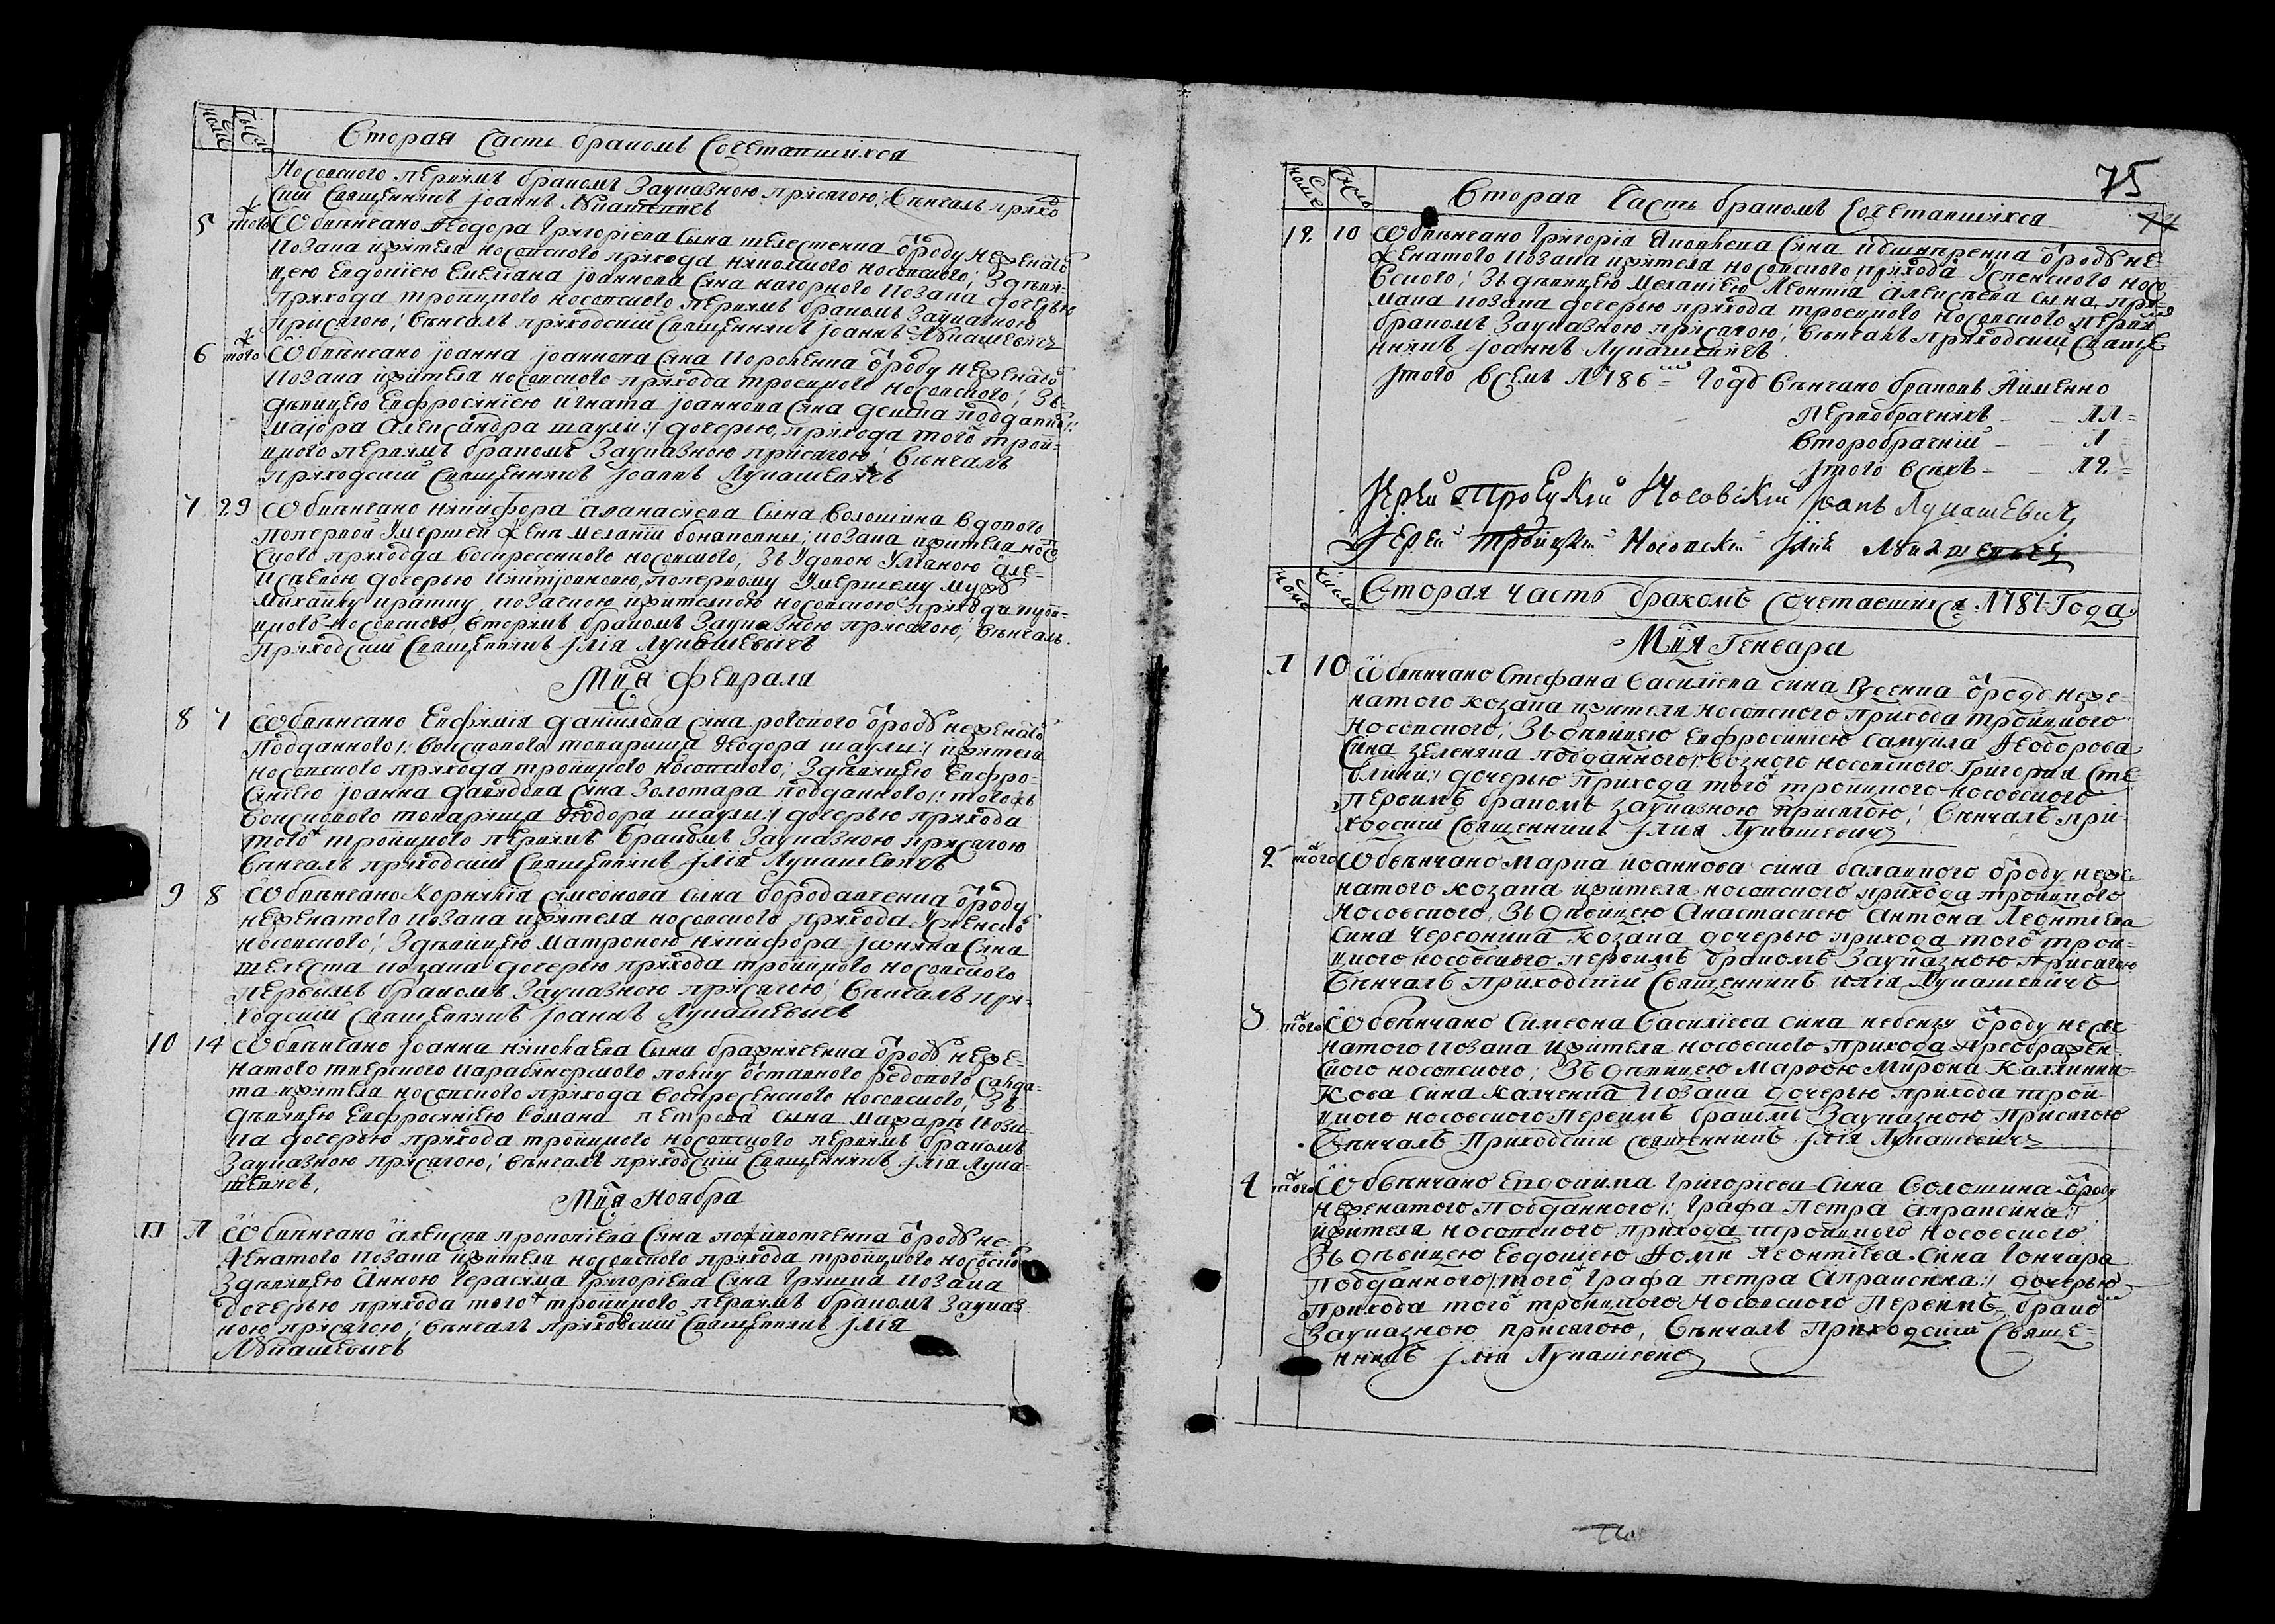 номе
Число
Вторая Часть бракомъ Сочетавшихся
Носовского первымъ бракомъ Зауказною присягою; Венчалъ прихо
скій Священникъ Іоаннъ Лукашевичъ
5 того Обвѣнчано Ѳеодора Григоріева Сына шелестенка ѿроду неженато
козака жителя носовского прихода николского носовского; Здѣви-
цею Евдокіею Емеліана Іоаннова Сина нагорного козака дочерью
прихода тройцкого носовского первымъ бракомъ Зауказною
присягою; Вѣнчалъ приходскій Священникъ Іоаннъ Лукашевичъ
6 того Обвѣнчано Іоанна Іоаннова Сина Короленка ѿроду неженато
козака жителя носовского прихода троецкого носовского; Зъ
дѣвицею Евфросиніею Игната Іоаннова Сина подданно
маіора Александра шаули:/ дочерью, прихода того трой-
цкого первымъ бракомъ Зауказною присягою; Вѣнчалъ
приходскій Священникъ Іоаннъ Лукашевичъ
7 29 Обвѣнчано Никифора Аѳанасиева Сына Волошина вдового
поперво умершей женѣ Меланіи козака жителя носо
ского прихода воскресенского носовского; Зъ удовою Уліяною Але-
ксѣевою дочерью поперрвому умершему мужу
Михайлу козачкою жителкою носовскою прихода трой-
цкого носовского, вторымъ бракомъ Зауказною присягою; Вѣнчалъ
приходскій Священникъ Ілія Лукашевичъ
Мца Февраля
8 7 Обвѣнчано Евфимія Даніилова Сина рогового ѿроду неженато
подданного /: войскового товариша Ѳеодора шаулы:/ жителя
носовского прихода тройцкого носовского; Здѣвицею Евфро-
синіею Іоанна Давидова Сина Золотара подданного /: того жъ
войскового товариша Ѳеодора шаулы:/ дочерью прихода
того ж тройцкого первымъ бракомъ Зауказною присягою
Вѣнчалъ приходскій Священникъ Ілія Лукашевичъ
9 8 Обвѣнчано Корнилія Симеонова Сына бородавченка ѿроду
неженатого козака жителя носовского прихода Успенско
носовского; Здѣвицею Матроною Никифора Сина
шелеста козака дочерью прихода тройцкого носовского
первымъ бракомъ Зауказною присягою; Вѣнчалъ при-
ходскій Священникъ Іоаннъ Лукашевичъ
10 14 Обвѣнчано Іоанна Николаева Сына бражниченка ѿроду неже-
натого тверского карабинерного полку ѿставного рядового Салда-
та жителя носовского прихода воскресенского носовского; Зъ
дѣвицею Евфросиніею Романа Петрова Сына коза
ка дочерью прихода тройцкого носовского первымъ бракомъ
Зауказною присягою; Вѣнчалъ приходскій Священникъ Ілія Лука-
шевичъ,
Мца Ноабра
11 1 Обвѣнчано Алексѣя Прокопіева Сина ѿроду не-
женатого козака жителя носовского прихода тройцкого носовско
Здѣвицею Анною Герасима Григоріева Сина Гришка козака
дочерью прихода того ж тройцкого первымъ бракомъ Зауказ-
ною присягою; Вѣнчалъ приходскій Священникъ Ілія
Лукашевичъ
75
74
номе
Число
Вторая Часть бракомъ Сочетавшихся
12 10 Обвѣнчано Григоріа Сина ѿроду не
женатого козака жителя носовского прихода Успенского носо
вского; Зъ дѣвицею Меланіею Леонтіа Алексѣева сына
козака дочерью прихода троецкого носовского первим
бракомъ Зауказною присягою; Вѣнчалъ приходскій Свяще
нникъ Іоаннъ Лукашевичъ
Ітого всемъ 1786 Году Вѣнчано браковъ Аименно
Первобрачнихъ – – 11 =
Второбрачній – – 1 =
Ітого всѣхъ – – 12 =
Іерей Троецкій Носовскій Іоанъ Лукашевич
Іерей Тройцкій Носовскій Іліа Лукашевичъ
номе
число
Вторая часть бракомъ сочетавшихся 1787 Года
Мця Генвара
1 10 Обвѣнчано Стефана Василіева сина Русенка ѿроду неже-
натого козака жителя носовского прихода тройцкого
носовского; Зъ дѣвицею Евфросиніею Самуйла Ѳеодорова
Сина Зеленяка подданного /: возного носовского Григорія Сте
блики:/ дочерью Прихода того ж тройцкого носовского
первимъ бракомъ Зауказною присягою; Вѣнчалъ при-
ходскій Священникъ Ілия Лукашевичъ
2 того Обвѣнчано Марка Иоаннова сина балацкого ѿроду неже-
натого козака жителя носовского прихода тройцкого
носовского; Зъ дѣвицею Анастасиею Антона Леонтіева
Сина Чередника козака дочерью прихода того ж трой-
цкого носовского первимъ бракомъ Зауказною присягою
Вѣнчалъ Приходскій Священникъ Илія Лукашевичъ
3 того Обвѣнчано Симеона Василіева сина небензу ѿроду неже-
натого козака жителя носовского Прихода Преображен-
ского носовского; Зъ дѣвицею Марѳою Мирона Калинни-
кова сина Калченка козака дочерью прихода трой
цкого носовского Первимъ бракомъ Зауказною Присягою
Вѣнчалъ Приходскій священникъ Ілія Лукашевичъ
4 того Обвѣнчано Евдокима Григоріева Сина Волошина ѿроду
неженатого Подданного /: Графа Петра Апраксина:/
жителя носовского прихода тройцкого Носовского
Зъ дѣвицею Евдокіею Ѳоми Леонтіева Сина Гончара
Подданного /: того ж Графа Петра Апраксина:/ дочерью
Прихода того ж тройцкого Носовского Первимъ бракомъ
Зауказною присягою, Вѣнчалъ Приходскій Свяще-
нникъ Ілія Лукашевичъ